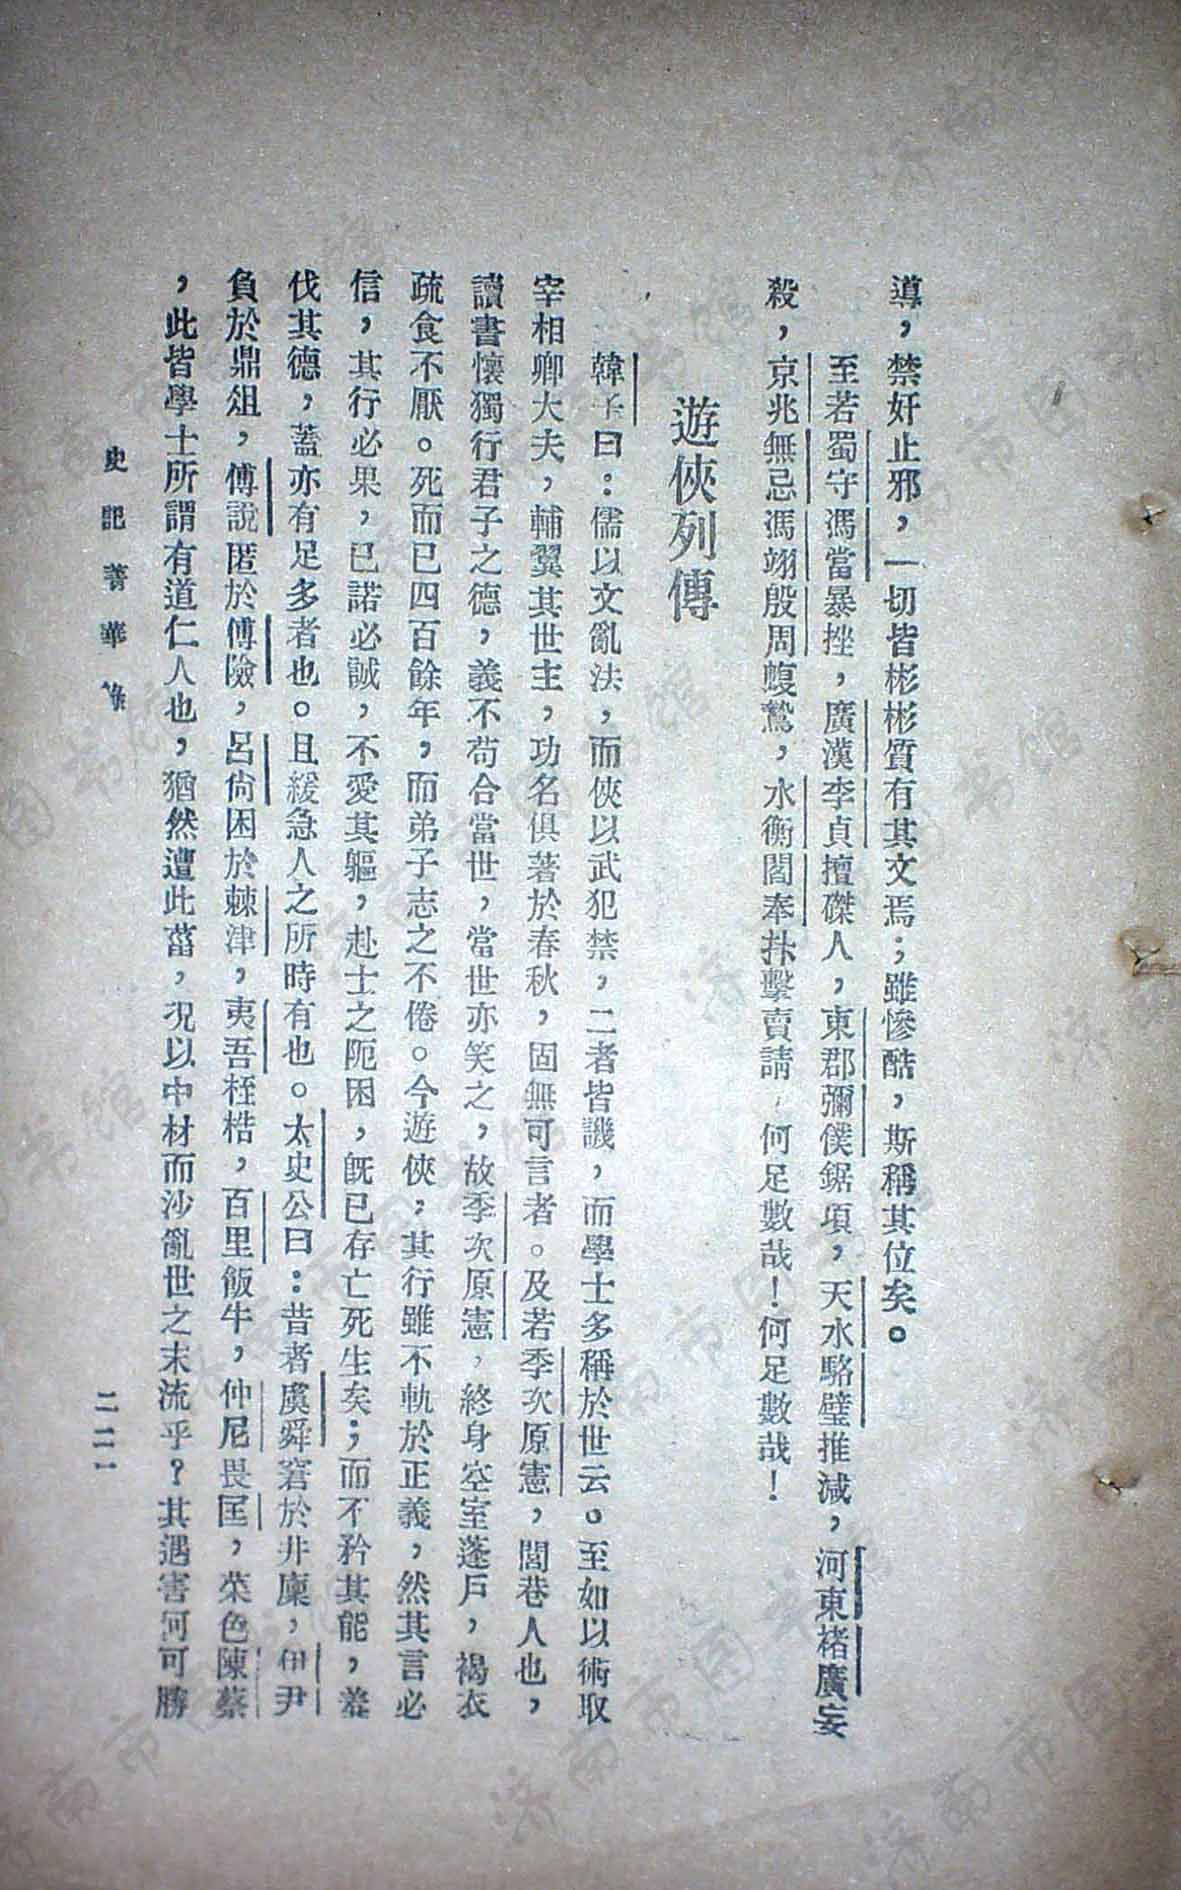 導，禁奸止邪，一切皆彬彬質有其文焉；雖慘酷，斯稱其位矣。
至若蜀守馮當暴挫，廣漢李貞擅磔人，東郡彌僕鋸項，天水駱璧推減，河東褚廣妄
殺，京兆無忌馮翊殷周蝮鷙，水衡閻奉扑擊賣請，何足數哉！何足數哉！
遊俠列傳
韓子曰：儒以文亂法，而俠以武犯禁，二者皆譏，而學士多稱於世云。至如以術取
宰相卿大夫，輔翼其世主，功名俱著於春秋，固無可言者。及若季次原憲，閭巷人也，
讀書懷獨行君子之德，義不苟合當世，當世亦笑之，故季次原憲，終身空室蓬戶，褐衣
疏食不厭。死而已四百餘年，而弟子志之不倦。今遊俠，其行雖不軌於正義，然其言必
信，其行必果，已諾必誠，不愛其軀，赴士之阨困，既已存亡死生矣；而不矜其能，羞
伐其德，蓋亦有足多者也。且緩急人之所時有也。太史公曰：昔者虞舜窘於井廩，伊尹
負於鼎俎，傅說匿於傅險，呂尚困於棘津，夷吾桎梏，百里飯牛，仲尼畏匡，菜色陳蔡
，此皆學士所謂有道仁人也，猶然遭此菑，況以中材而涉亂世之末流乎？其遇害何可勝
史記菁華錄
二二一
济南市图书馆